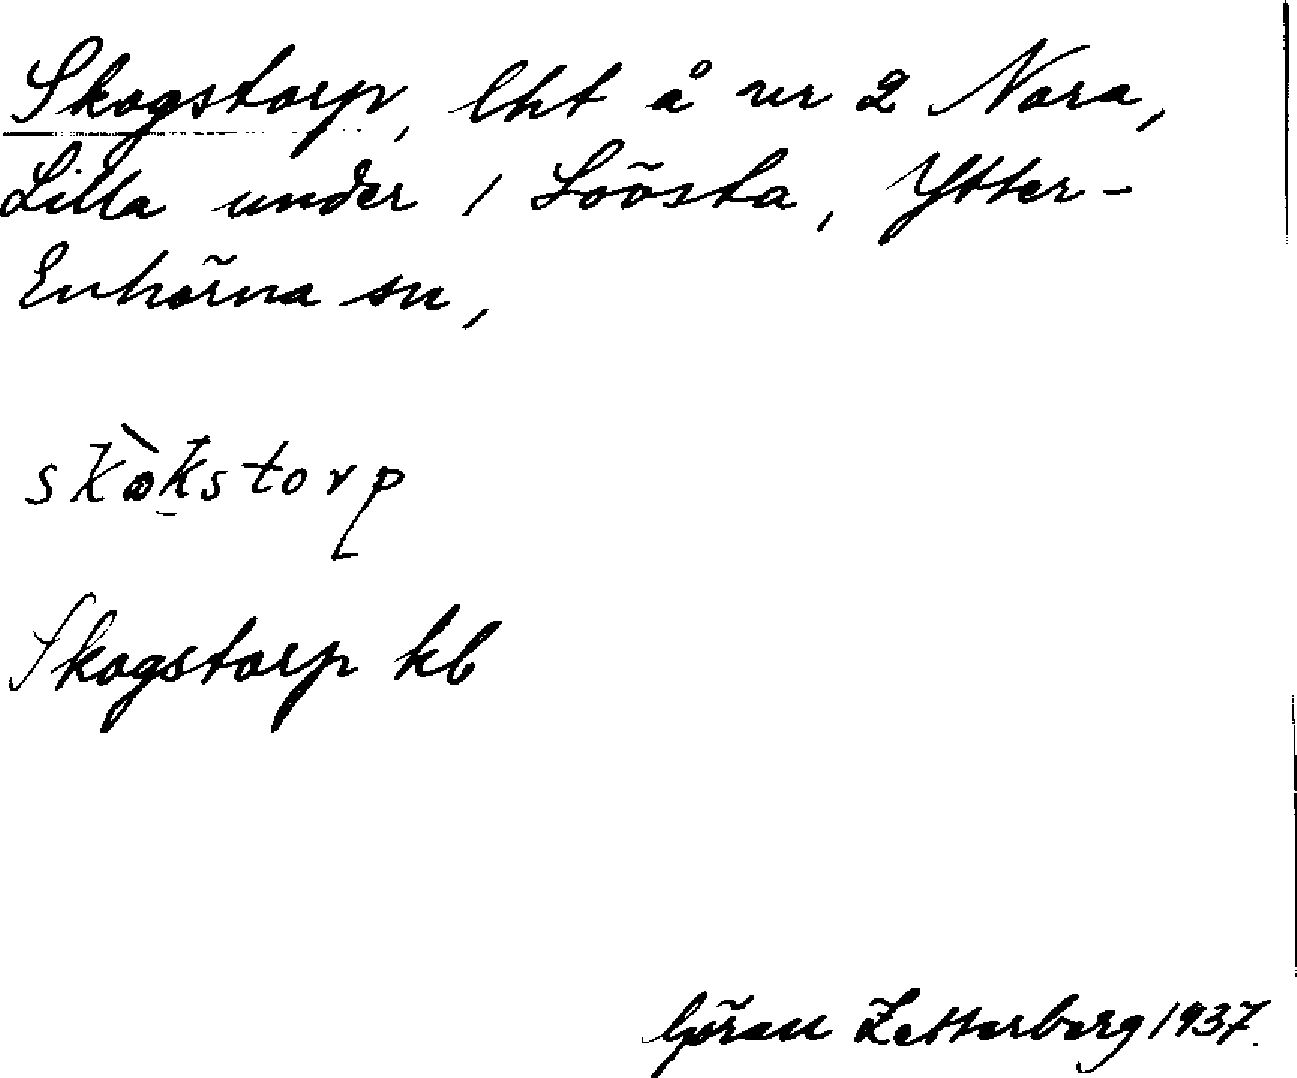 Skogstorp, lht å nr 2 Nora,
Lilla under 1 Löösta, Ytter-
Enhörna sn,
skòkstorp
Skogstorp kb
Göran Zetterberg 1937.